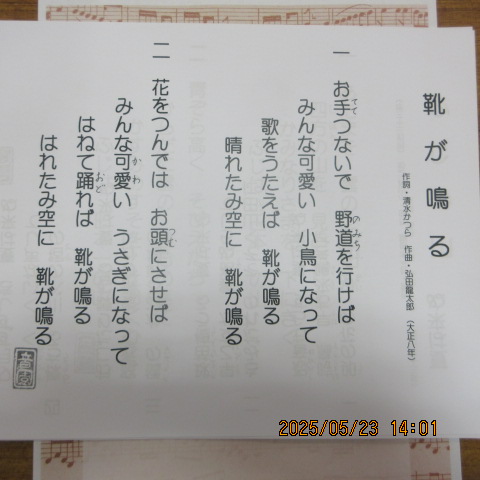 靴が鳴る
作詞・清水かつら 作曲・弘田龍太郎 （大正八年）
一 お手つないで 野道を行けば
みんな可愛い 小鳥になって
歌をうたえば 靴が鳴る
晴れたみ空に 靴が鳴る
二 花をつんでは お頭にさせば
みんな可愛い うさぎになって
はねて踊れば 靴が鳴る
はれたみ空に 靴が鳴る
2025/05/23 14:01